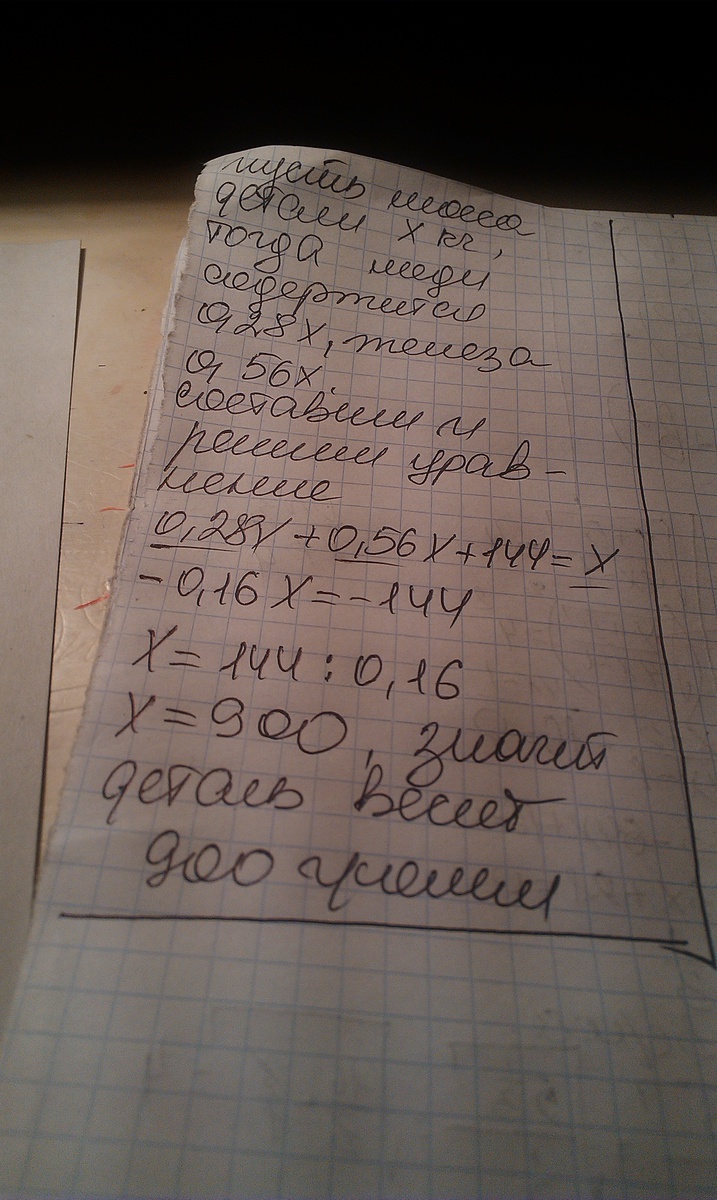 пусть масса
детали x кг,
тогда меди
содержится
0,28x, железа
0,56x.
составим и
решим урав-
нение
0,28x + 0,56x + 144 = x
-0,16x = -144
x = 144 : 0,16
x = 900, значит
деталь весит
900 грамм